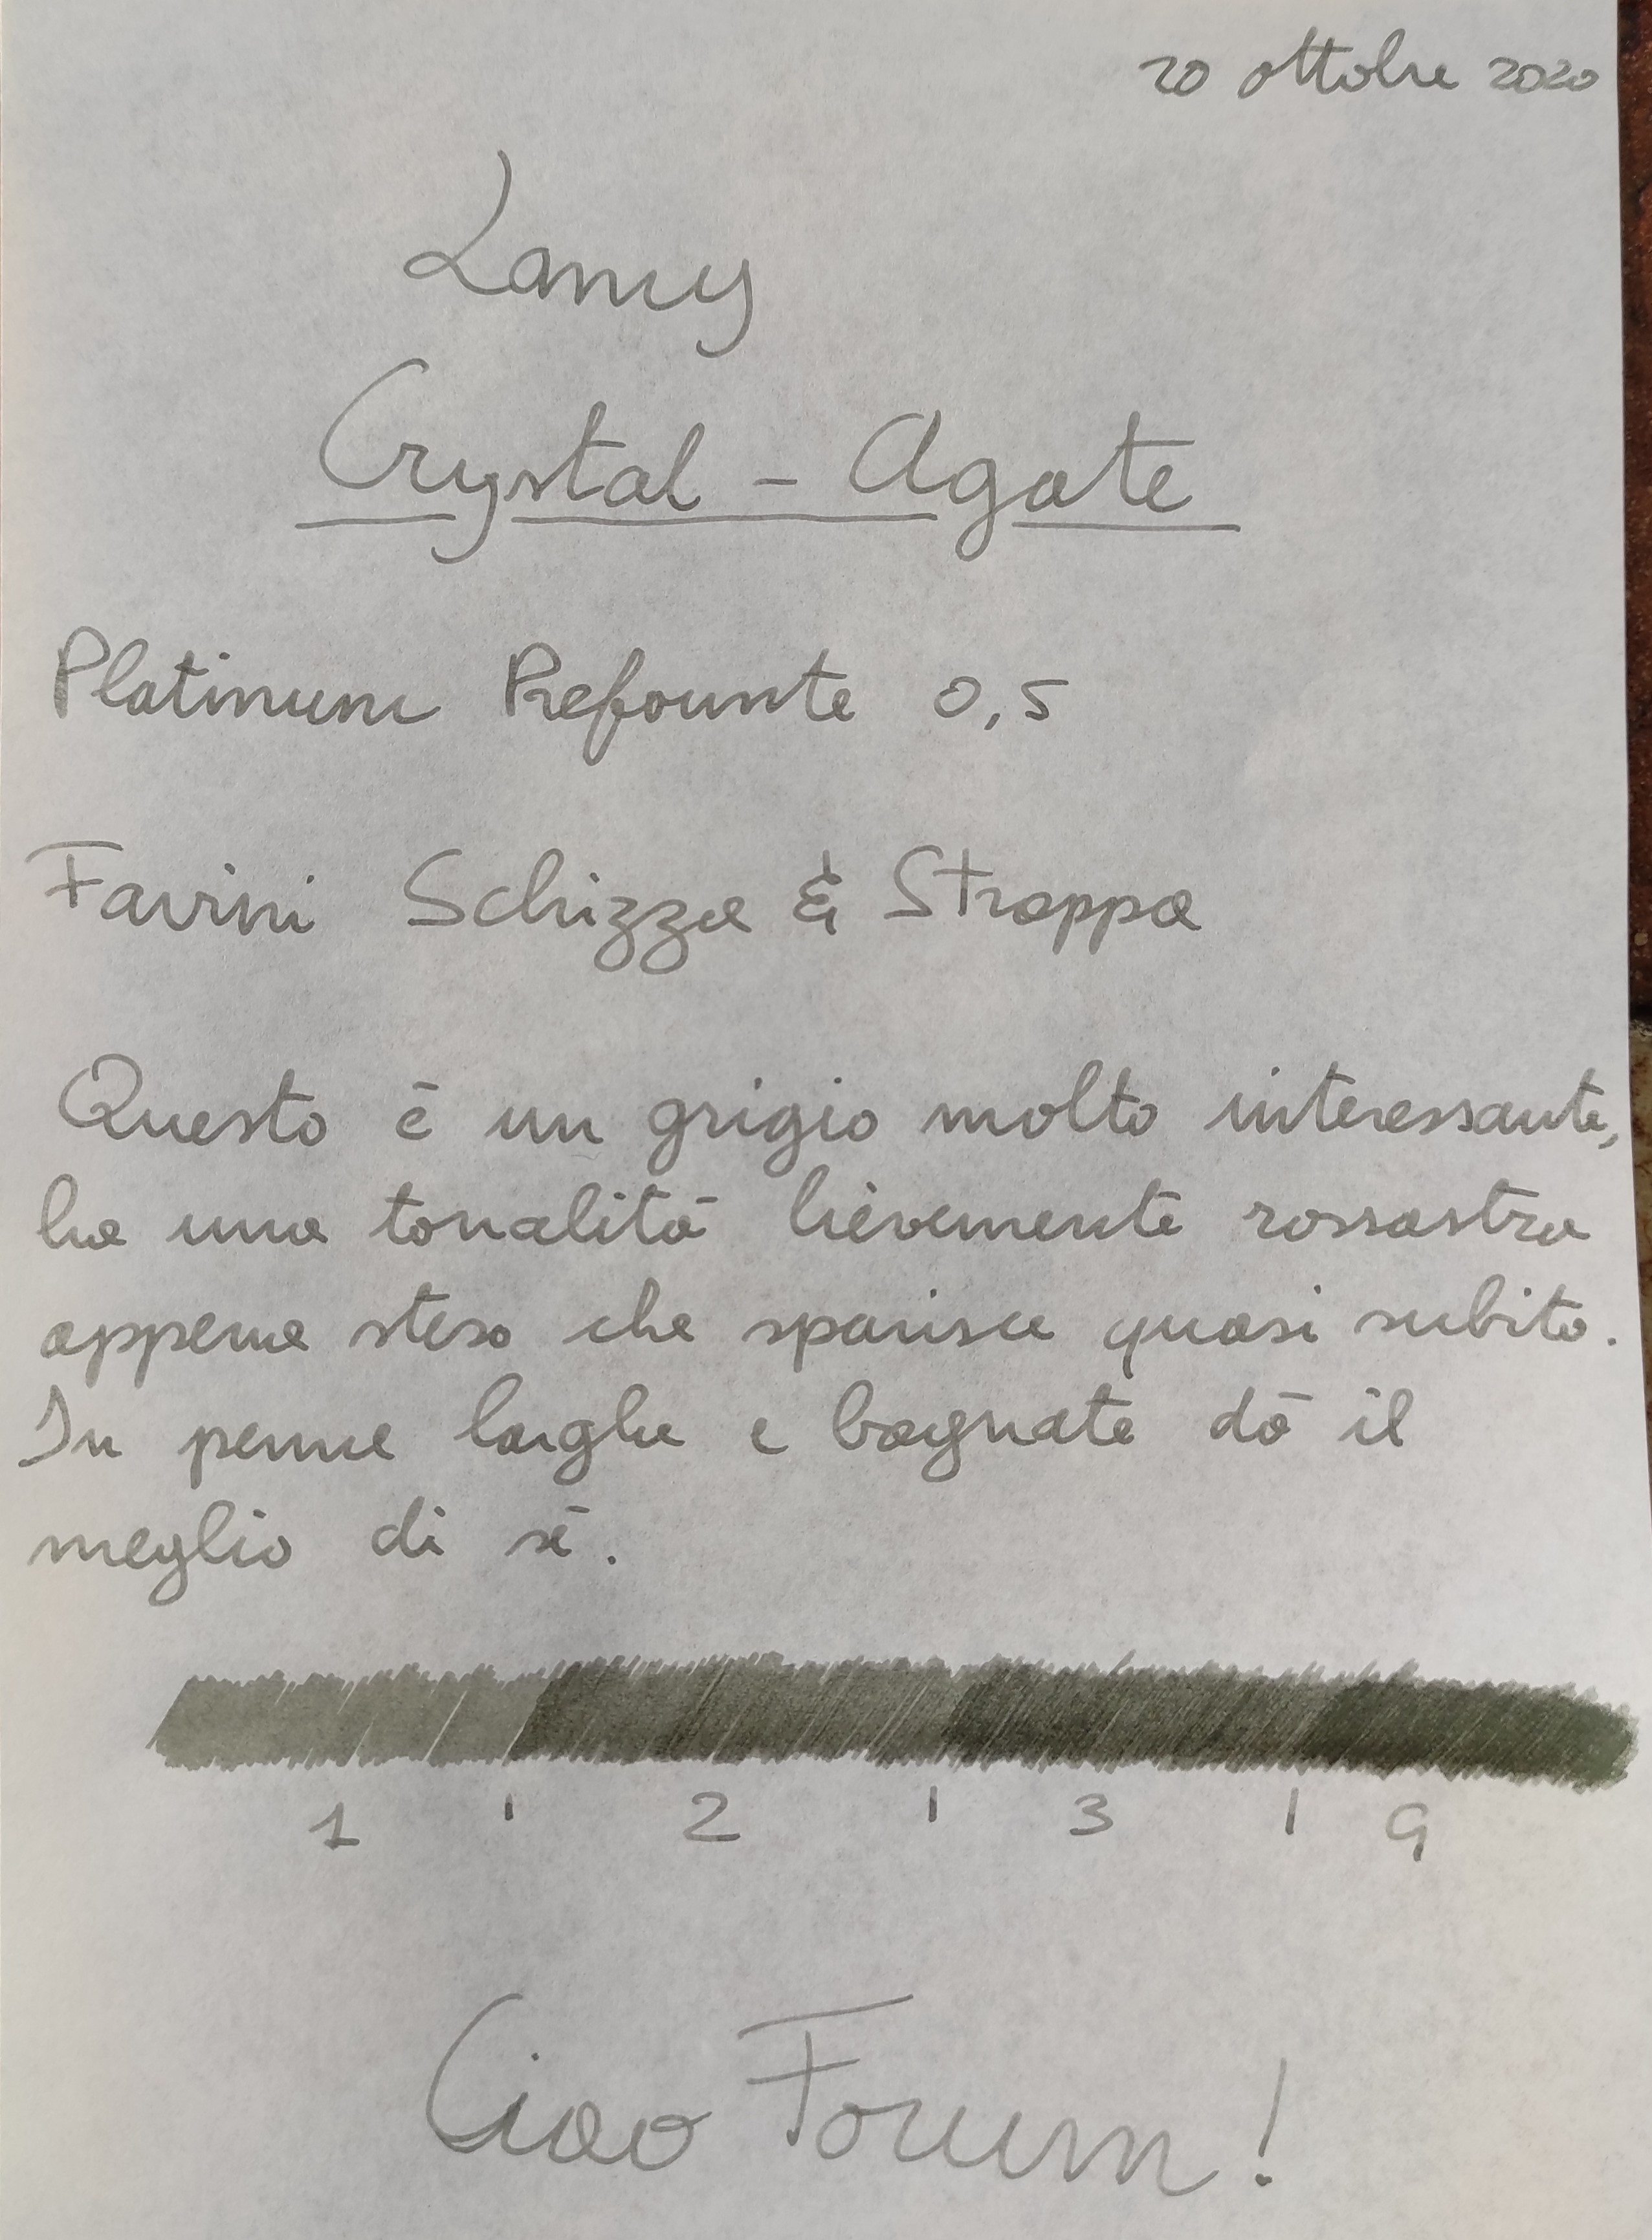 20 ottobre 2020
Lamy
Crystal - Agate
Platinum Prefounte 0,5
Favini Schizza & Strappa
Questo è un grigio molto interessante,
ha una tonalità lievemente rossastra
appena steso che sparisce quasi subito.
In penne larghe e bagnate dà il
meglio di sé.
1 | 2 | 3 | 9
Ciao Forum!